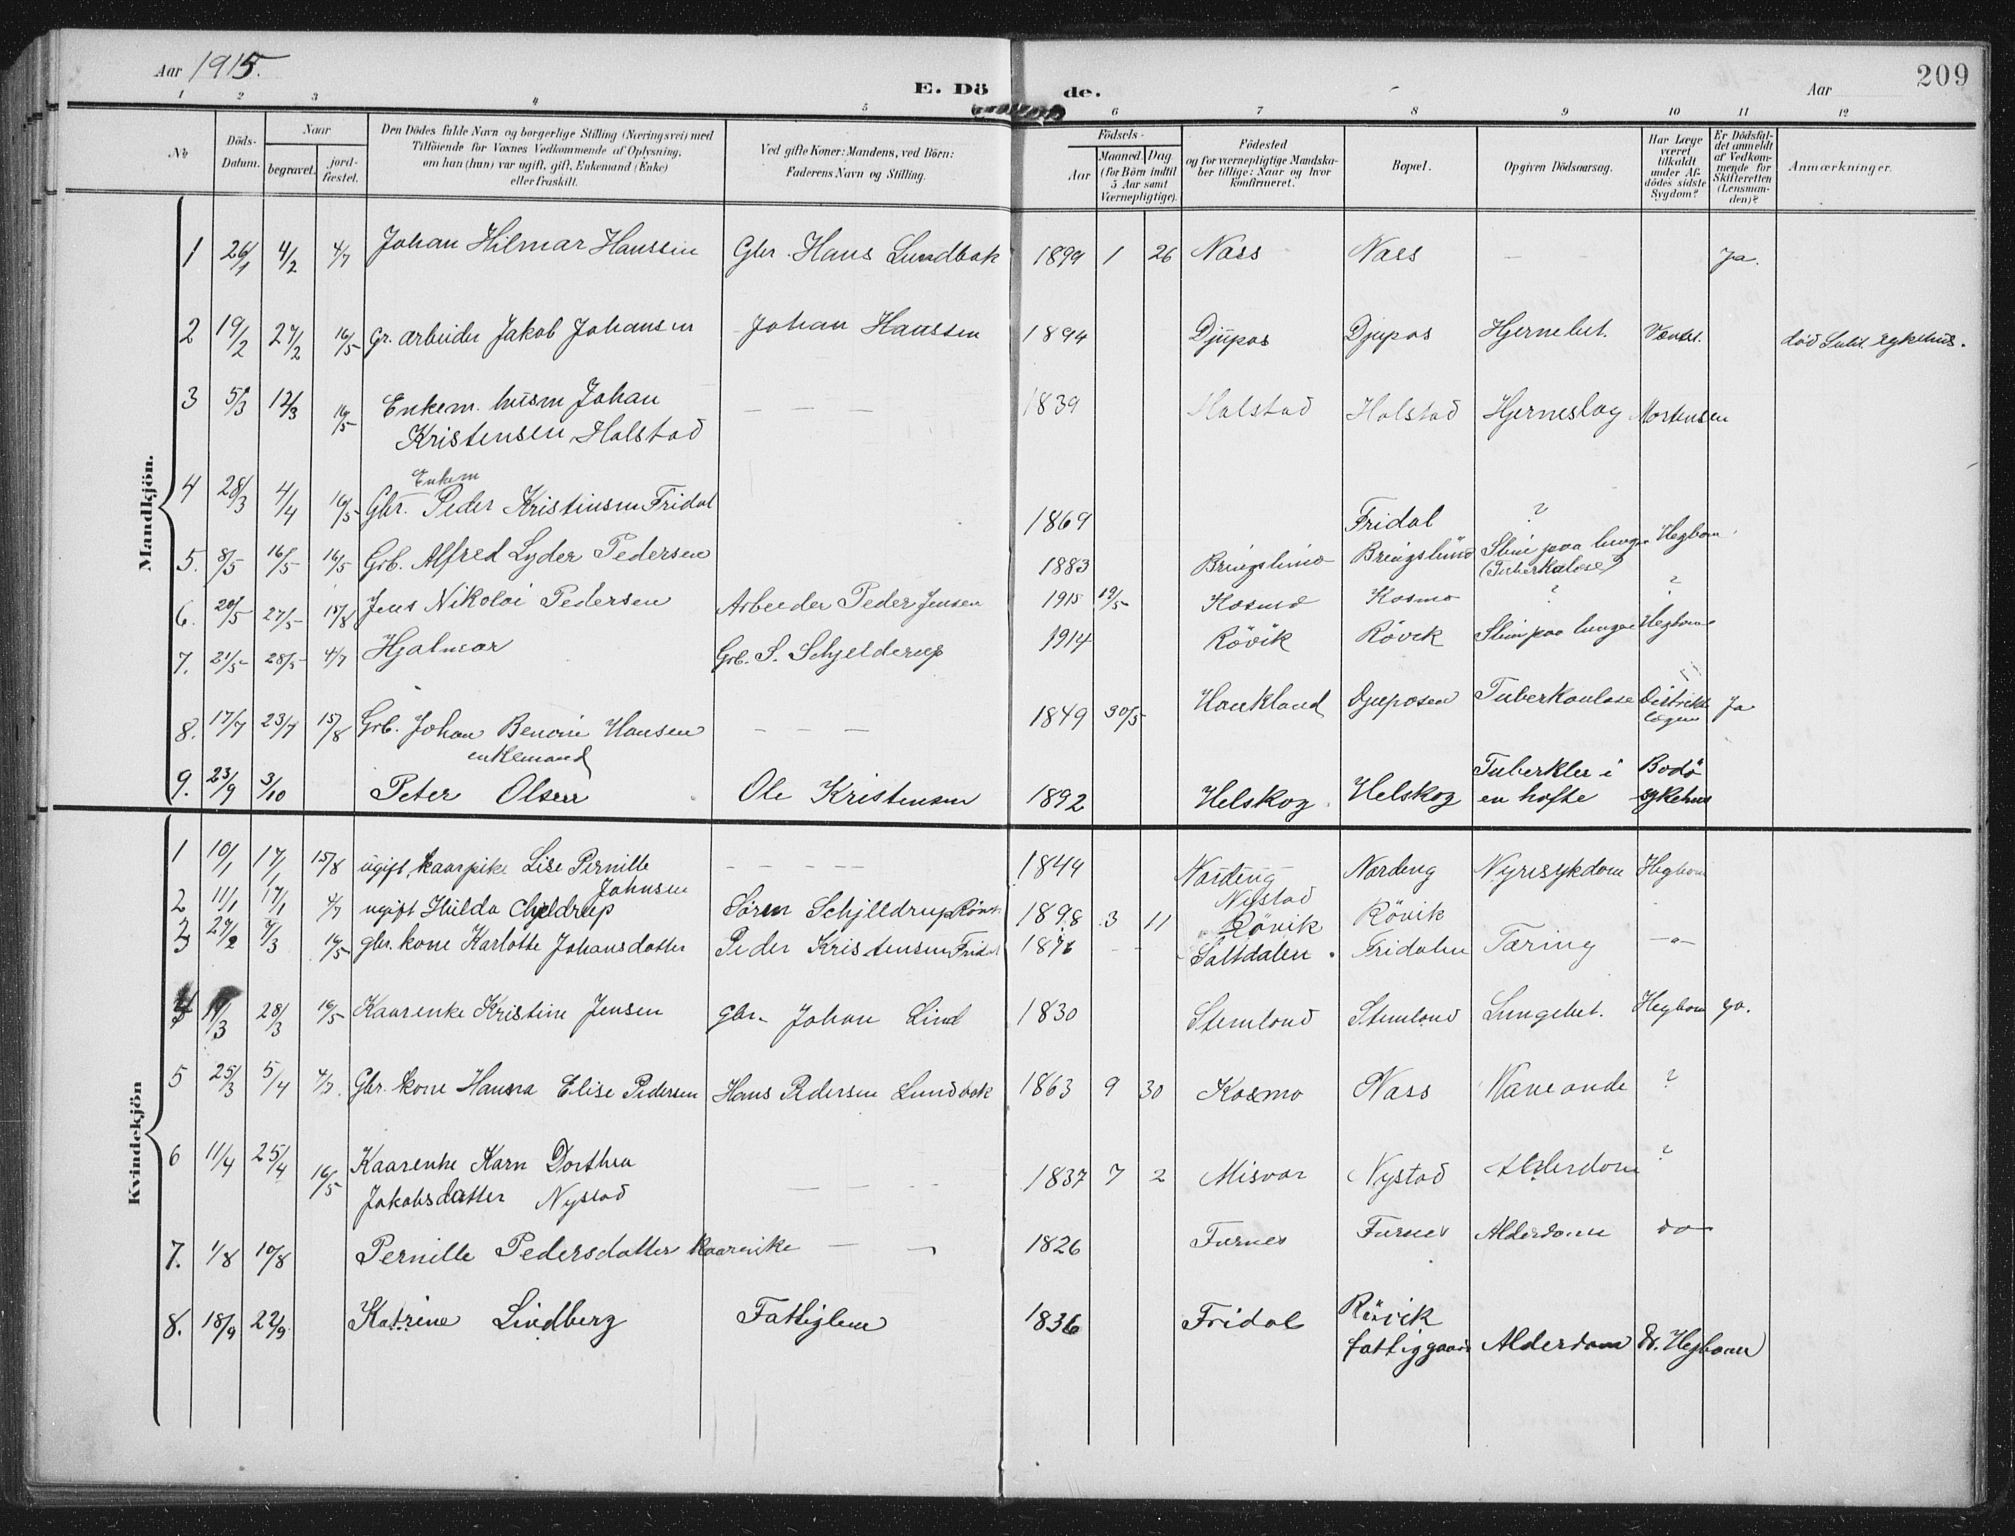 Aar 1915.
E. Dö de.
Aar
209
1 2 3 4 5 6 7 8 9 10 11 12
No
Döds-Datum.
Naar
begravet.
jord-fæstet.
Den Dödes fulde Navn og borgerlige Stilling (Næringsvei) med
Tilföiende for Voxnes Vedkommende af Oplysning,
om han (hun) var ugift, gift, Enkemand (Enke)
eller fraskilt.
Ved gifte Koner: Mandens, ved Börn:
Faderens Navn og Stilling.
Födsels-
Aar
Maaned. Dag.
(for Börn indtil
5 Aar samt
Værnepligtige).
Födested
og for værnepligtige Mandska-
ber tillige: Naar og hvor
konfirmeret.
Bopæl.
Opgiven Dödsaarsag.
Har Læge
været
tilkaldt
under Af-
dödes sidste
Sygdom?
Er Dödsfal-
det anmeldt
af Vedkom-
mende for
Skifteretten
(Lensman-
den)?
Anmærkninger.
Mandkjön.
1 26/1 4/2 4/7 Johan Hilmar Hanssen Gbr. Hans Lundbak 1899 1 26 Næss Næs - - Ja.
2 19/2 27/2 16/5 Gr. arbeider Jakob Johansen Johan Hanssen 1894 Djupos Djupos Hjernebet. død Sulit. sykehus.
3 5/3 12/3 16/5 Enkem. husm Johan
Kristensen Halstad - - - 1839 Halstad Halstad Hjerneslag Mortensen
Enkem
4 28/3 4/4 16/5 Gbr. Peder Kristensen Fridal 1869 Fridal ?
5. 8/5 16/5 16/5 Grb. Alfred Lyder Pedersen 1883 Bringslimo Bringslimo Slim paa lunge Hegbom
(Tuberkulose)
6. 20/5 27/5 15/8 Jens Nikolai Pedersen Arbeider Peder Jensen 1915 19/5 Kosmo Kosmo ? ?
7. 21/5 28/5 4/7 Hjalmar Grb. S. Schjelderup 1914 Rövik Rövik Slim paa lunge Hegbom
8. 17/7 23/7 15/8 Grb. Johan Benoni Hansen
enkemand - - - 1849 30/5 Haukland Djuposen Tuberkoulose Distrikts
lægen Ja
9. 23/9 3/10 Peter Olsen Ole Kristensen 1892 Helskog Helskog Tuberkler i
en hofte Bodö
sykehus
Kvindekjön
1 10/1 17/1 15/8 ugift, kaarpike Lise Pernille
Johnsen - - - - 1844 Narding
Nystad Narding Nyresykdom Hegbom
2 11/1 17/1 4/7 ugift Hulda Schjeldrup Sören Schjelldrup Rövik 1898 3 11 Rövik Rövik
3 27/2 7/3 16/5 gbr. kone Karlotte Johansdatter Peder Kristensen Fridal 1876 - - Saltdalen Fridalen Tæring -"-
4 19/3 28/3 16/5 Kaarenke Kristine Jensen Gbr. Johan Lind 1830 Stemland Stemland Lungebet. Hegbom ja.
5 25/3 5/4 4/7. Gbr. kone Hanna Elise Pedersen Hans Pedersen Lundbak 1863 9 30 Kosmo Næss ?
6 11/4 25/4 16/5 Kaarenke Karn Dorthea
Jakobsdatter Nystad - - - 1837 7 2 Misvær Nystad Alderdom ?
7. 1/8 10/8 Pernille Pedersdatter kaarenke - - 1826 Furnes Furnes Alderdom do
8. 18/9 22/9 Katrine Lindberg Fattiglem 1836 Fridal Rövik
fattiggaard Alderdom Dr. Hegbom